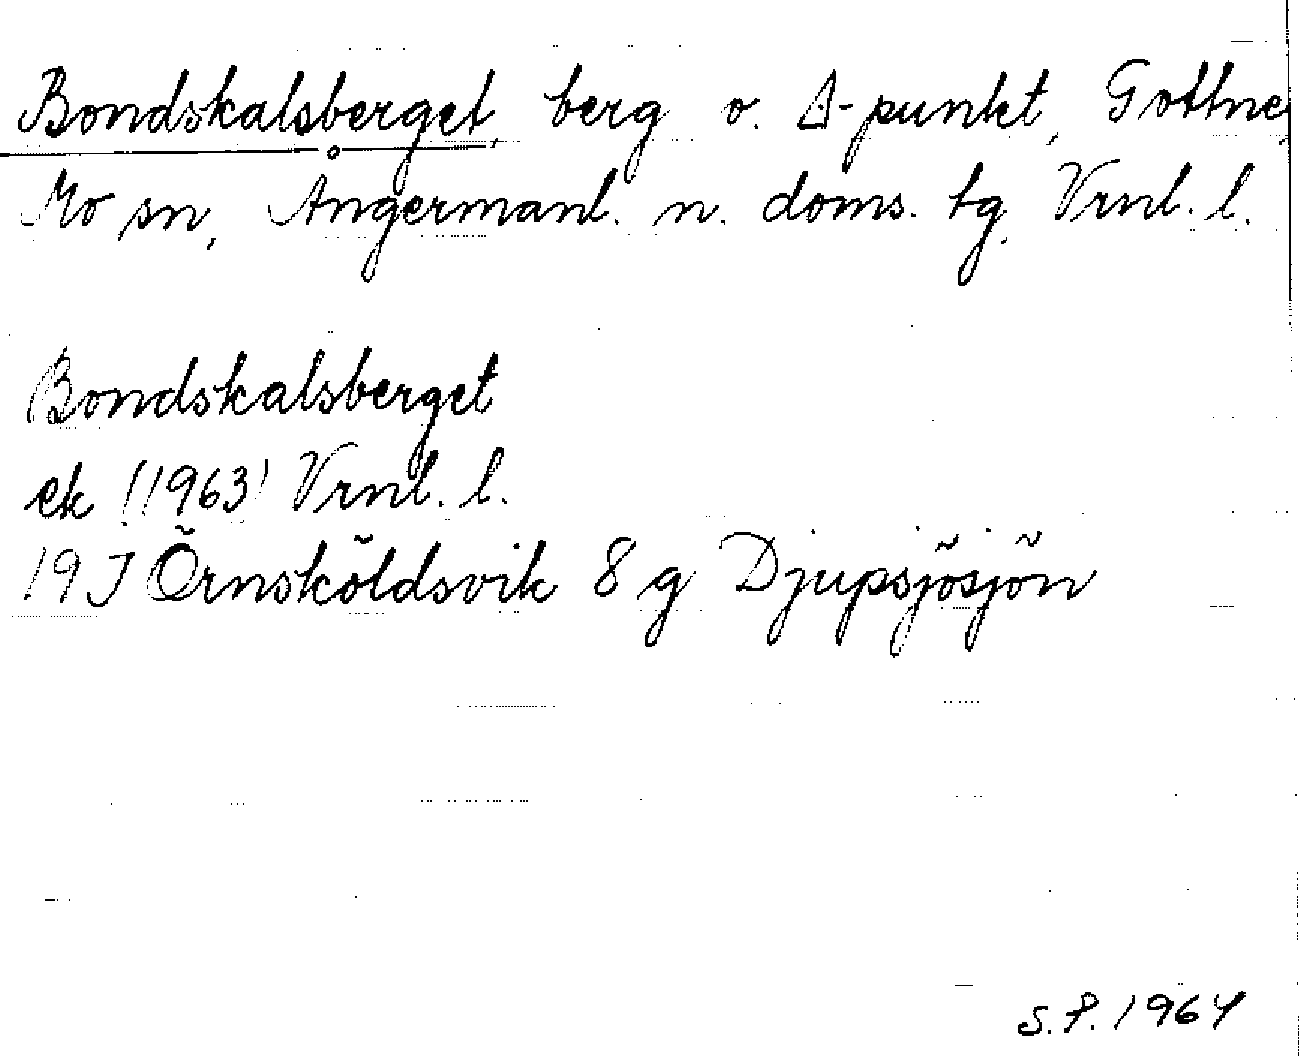 Bondskalsberget, berg o. Δ-punkt, Gottne,
Mo sn, Ångermanl. n. doms. tg, Vrnl. l.
Bondskalsberget
ek (1963) Vrnl. l.
19 J Örnsköldsvik 8 g Djupsjösjön
S.P. 1964